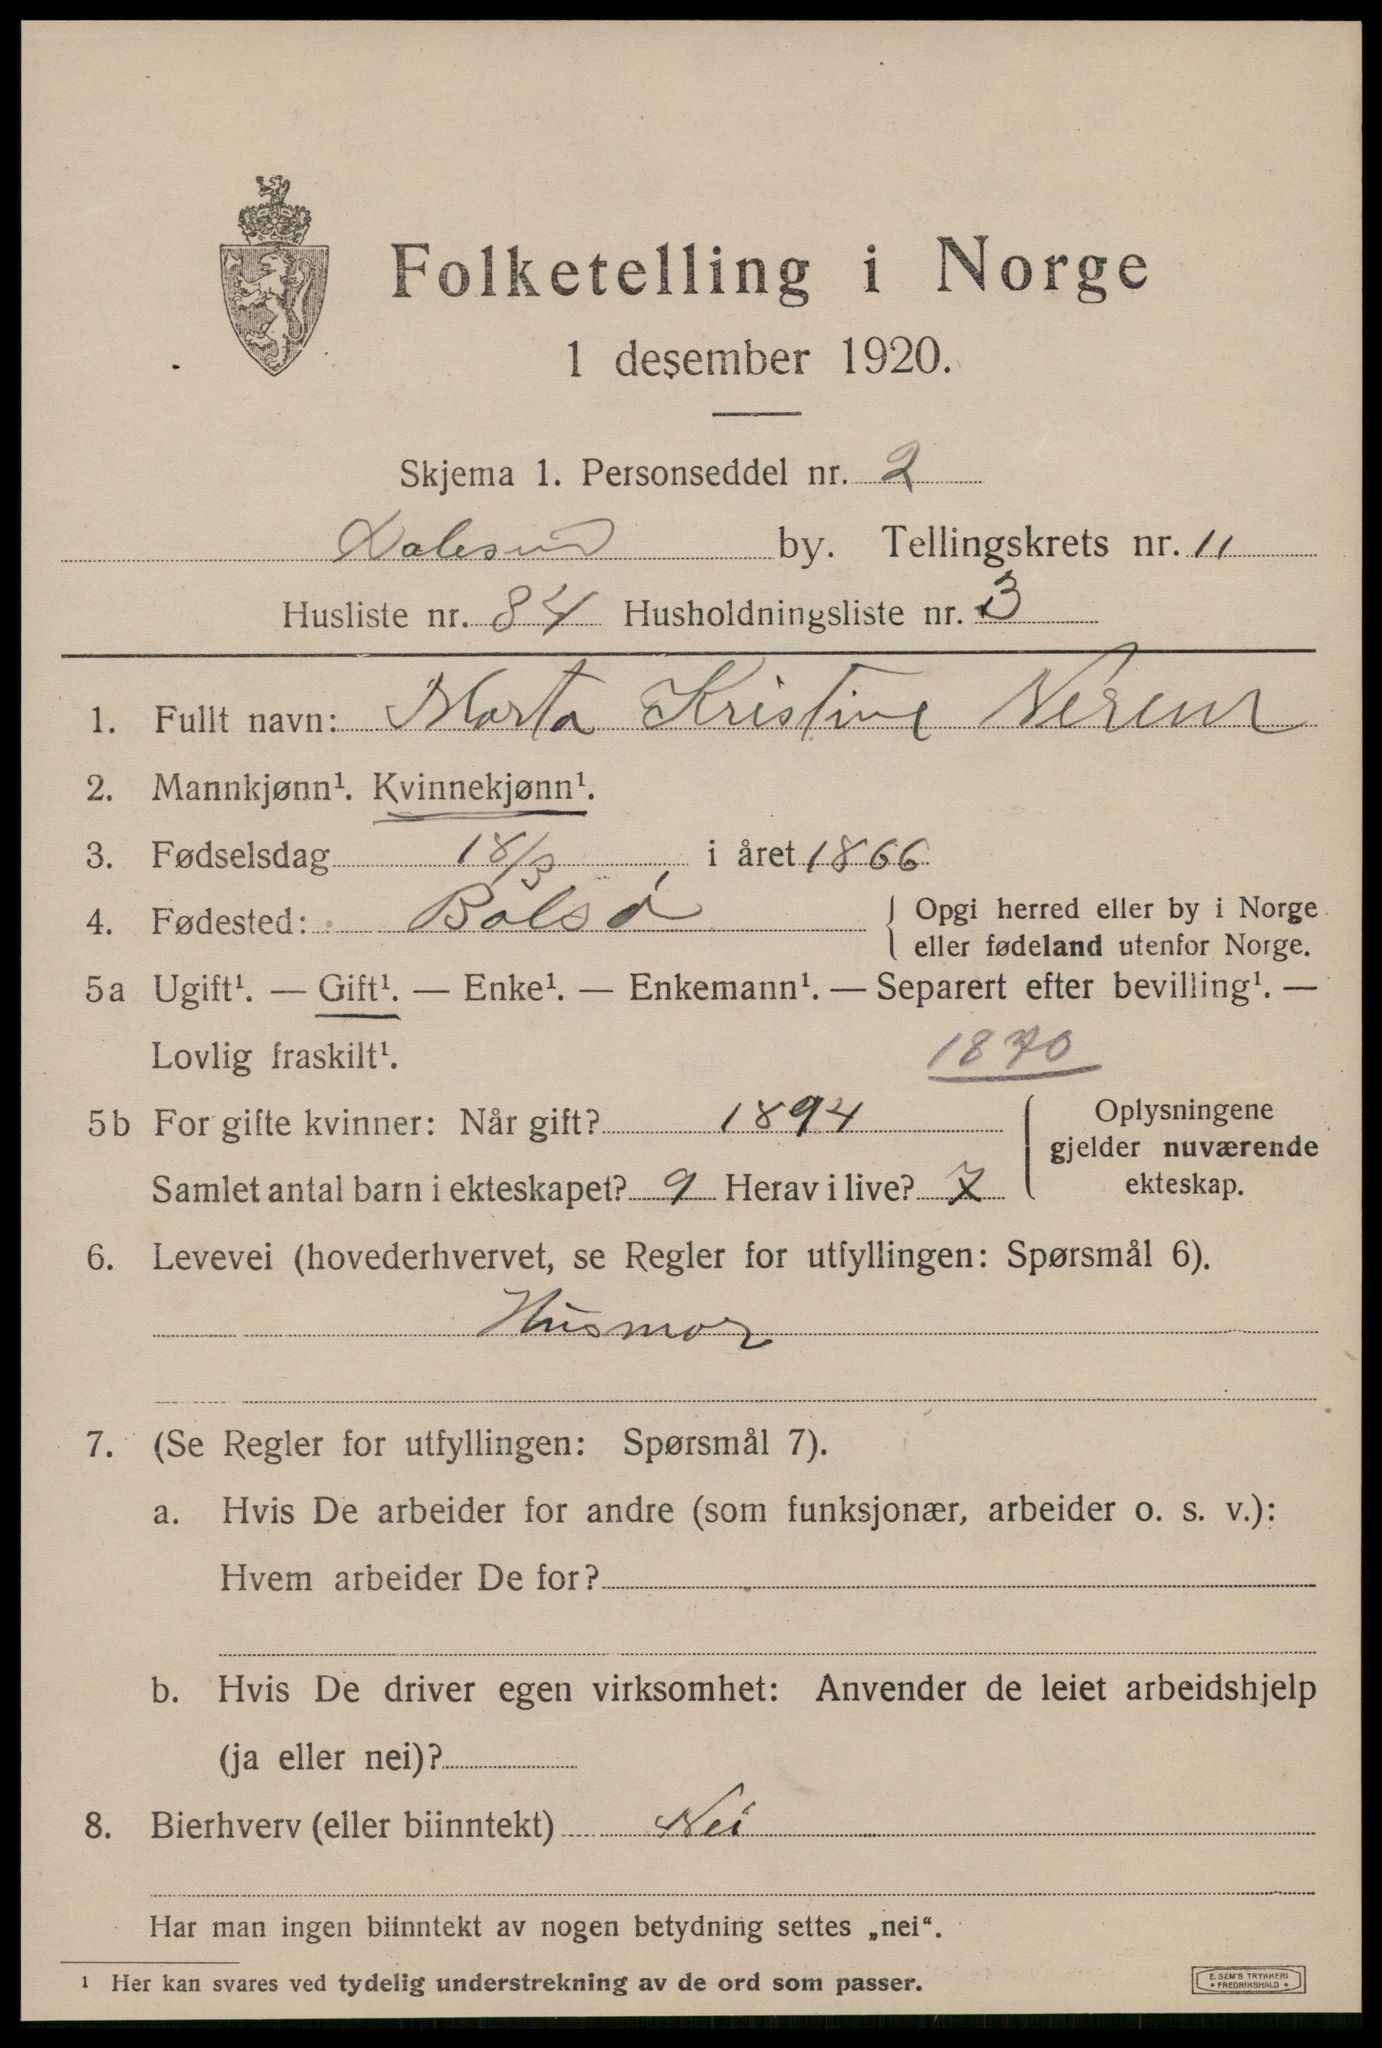 Folketelling i Norge
1 desember 1920.
Skjema 1. Personseddel nr. 2
Aalesund by. Tellingskrets nr. 11
Husliste nr. 84 Husholdningsliste nr. 3
1. Fullt navn: Marta Kristine
2. Mannkjønn¹. Kvinnekjønn¹.
3. Fødselsdag 18/3 i året 1866
4. Fødested: Bolsø { Opgi herred eller by i Norge
eller fødeland utenfor Norge.
5a Ugift¹. — Gift¹. — Enke¹. — Enkemann¹. — Separert efter bevilling¹. —
Lovlig fraskilt¹. 1870
5b For gifte kvinner: Når gift? 1894 { Oplysningene
gjelder nuværende
Samlet antal barn i ekteskapet? 9 Herav i live? 7 ekteskap.
6. Levevei (hovederhvervet, se Regler for utfyllingen: Spørsmål 6).
Husmor
7. (Se Regler for utfyllingen: Spørsmål 7).
a. Hvis De arbeider for andre (som funksjonær, arbeider o. s. v.):
Hvem arbeider De for?
b. Hvis De driver egen virksomhet: Anvender de leiet arbeidshjelp
(ja eller nei)?
8. Bierhverv (eller biinntekt) Nei
Har man ingen biinntekt av nogen betydning settes „nei“.
¹ Her kan svares ved tydelig understrekning av de ord som passer.
E. SEM'S TRYKKERI
• FREDRIKSHALD •